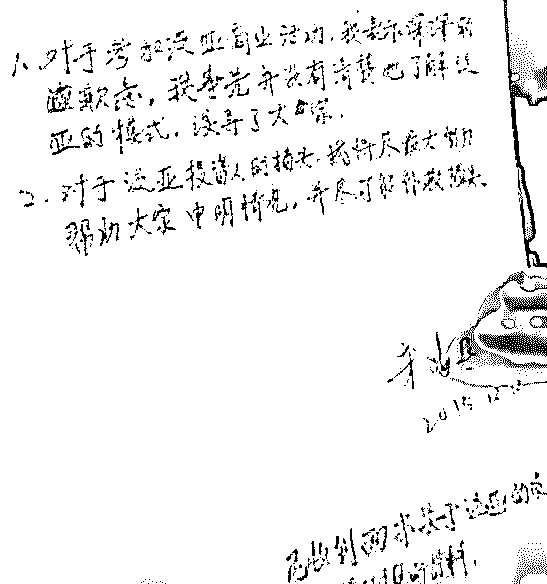 1、对于参加泛亚商业活动，我表示深深的
遗歉意，我事先并没有清楚地了解泛
亚的模式，误导了大家。
2、对于泛亚投资人的损失，我将尽最大努力
帮助大家申明情况，并尽可能弥救损失
2015 12
已收到 关于泛亚的
材料.